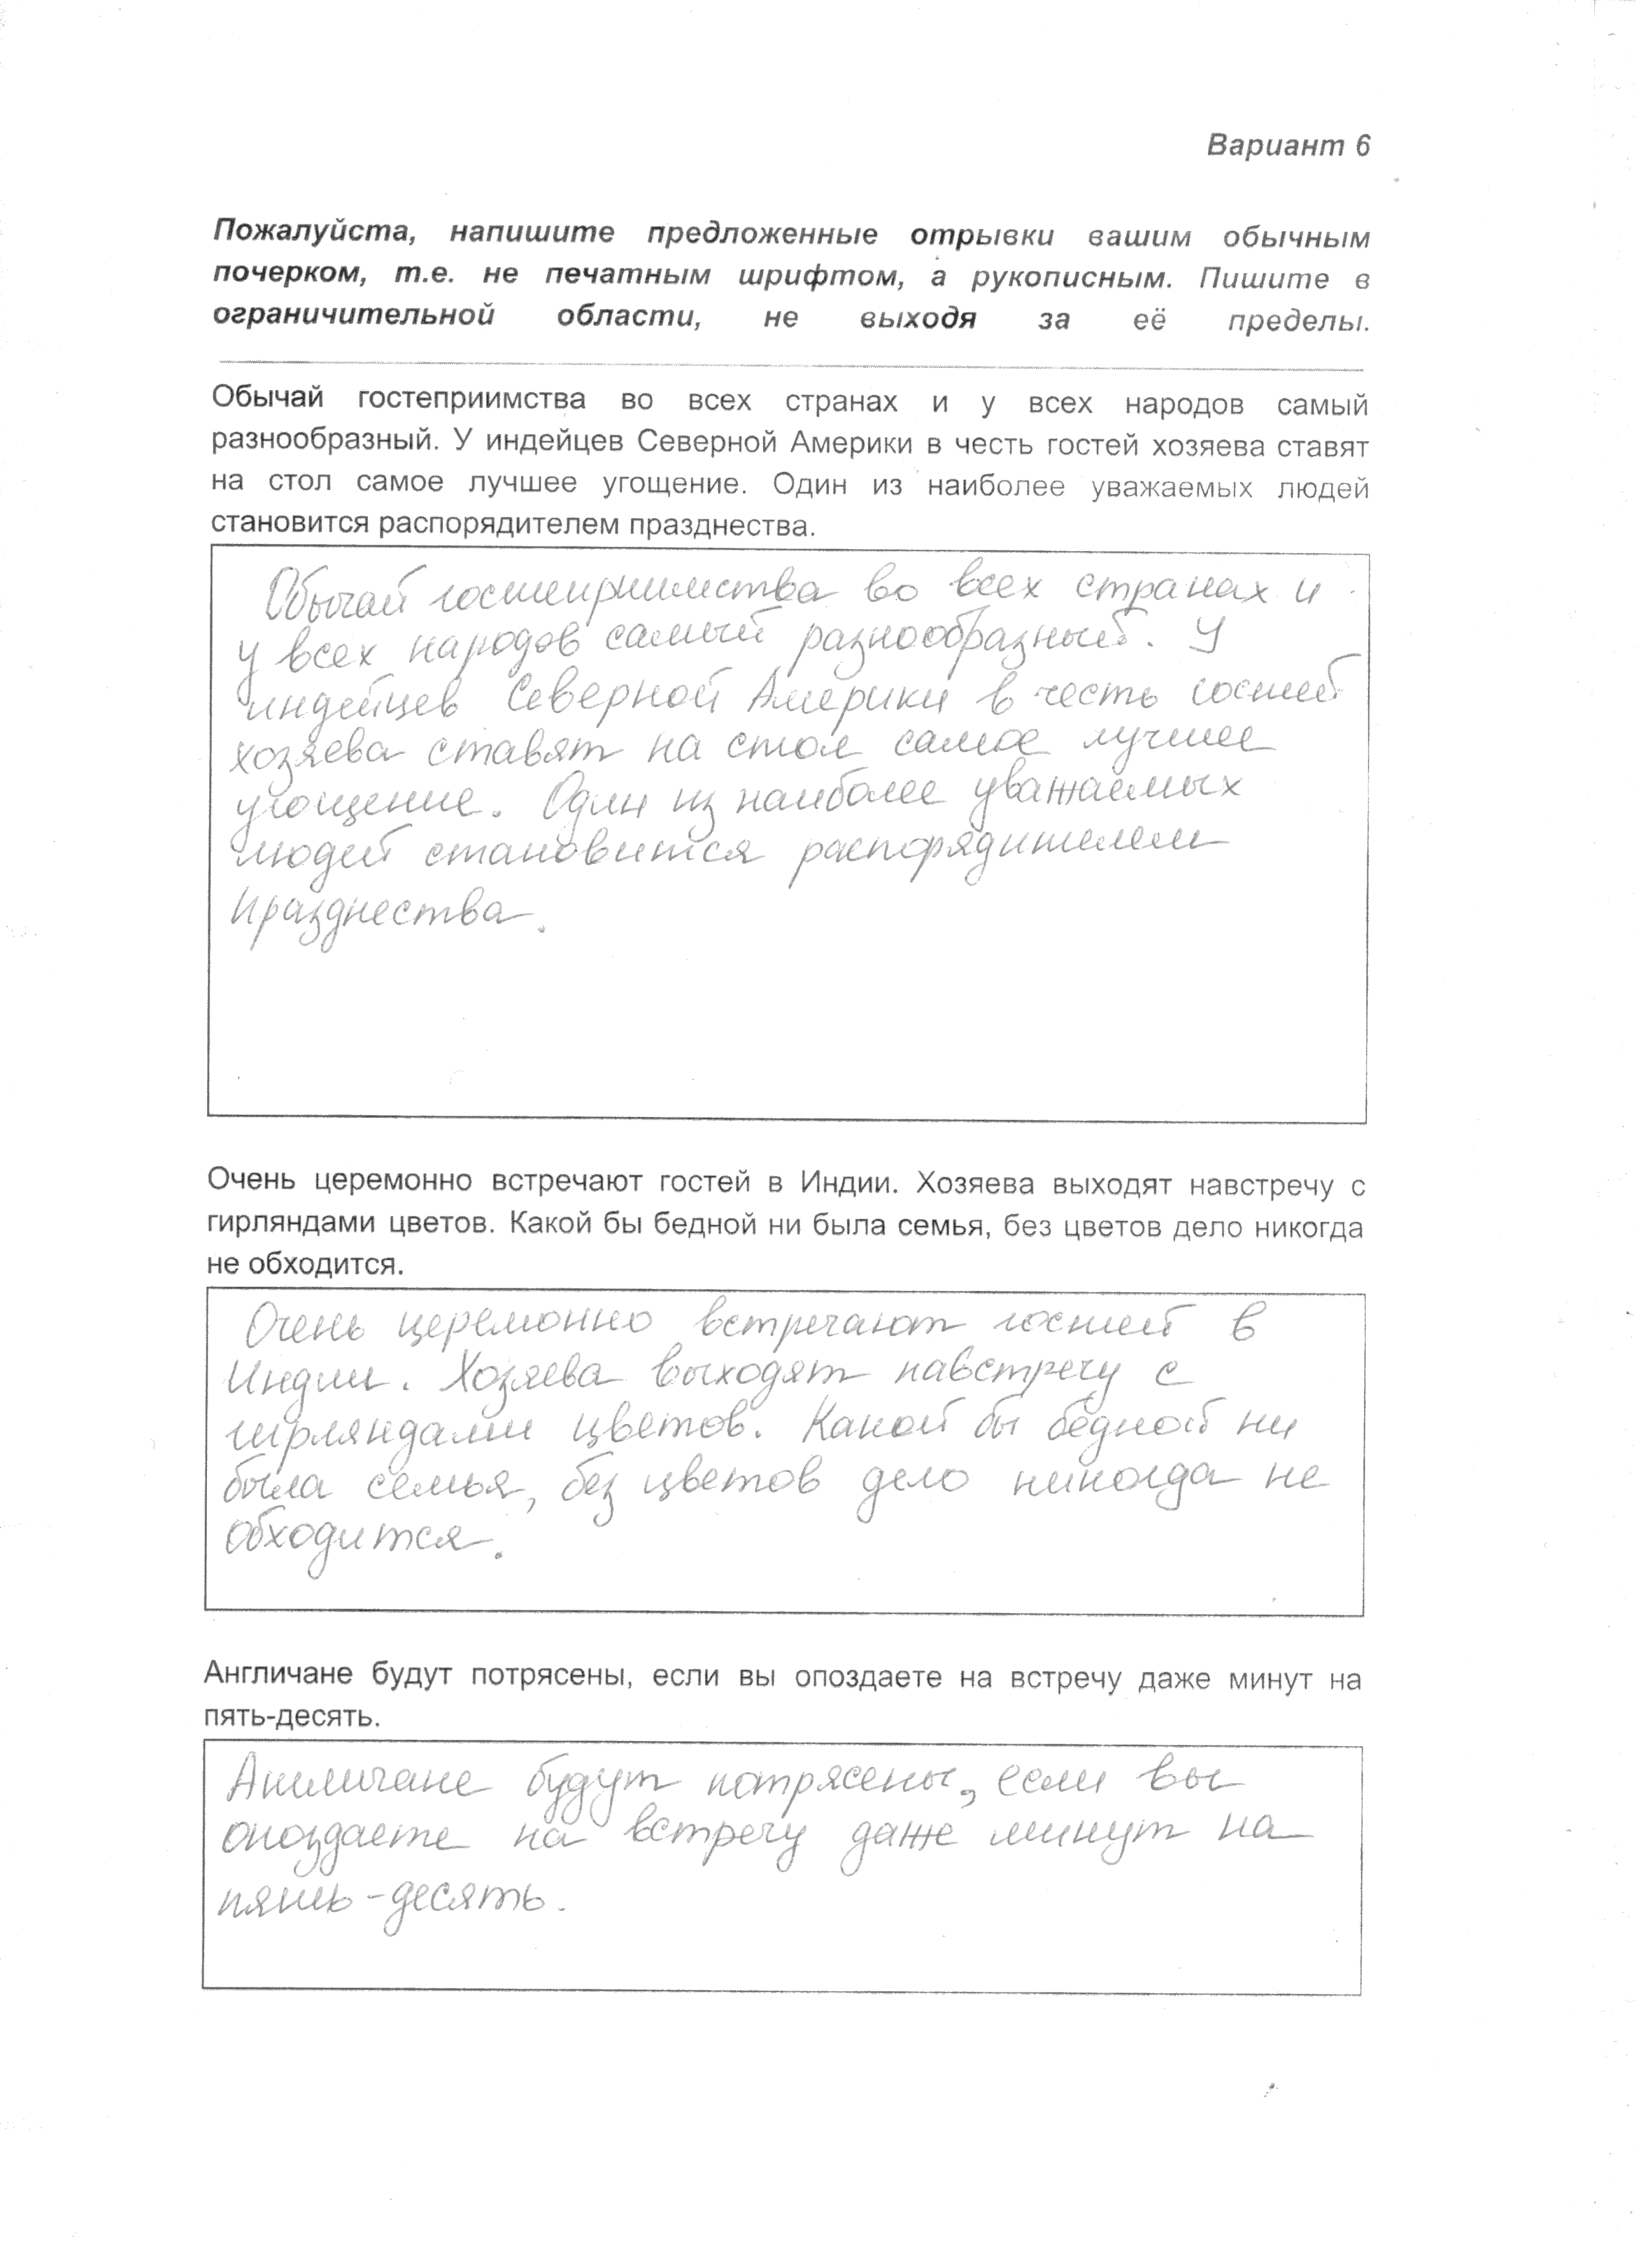 Вариант 6
Пожалуйста, напишите предложенные отрывки вашим обычным
почерком, т.е. не печатным шрифтом, а рукописным. Пишите в
ограничительной области, не выходя за её пределы.
Обычай гостеприимства во всех странах и у всех народов самый
разнообразный. У индейцев Северной Америки в честь гостей хозяева ставят
на стол самое лучшее угощение. Один из наиболее уважаемых людей
становится распорядителем празднества.
Обычай гостеприимства во всех странах и
у всех народов самый разнообразный. У
индейцев Северной Америки в честь гостей
хозяева ставят на стол самое лучшее
угощение. Один из наиболее уважаемых
людей становится распорядителем
празднества.
Очень церемонно встречают гостей в Индии. Хозяева выходят навстречу с
гирляндами цветов. Какой бы бедной ни была семья, без цветов дело никогда
не обходится.
Очень церемонно встречают гостей в
Индии. Хозяева выходят навстречу с
гирляндами цветов. Какой бы бедной ни
была семья, без цветов дело никогда не
обходится.
Англичане будут потрясены, если вы опоздаете на встречу даже минут на
пять-десять.
Англичане будут потрясены, если вы
опоздаете на встречу даже минут на
пять-десять.